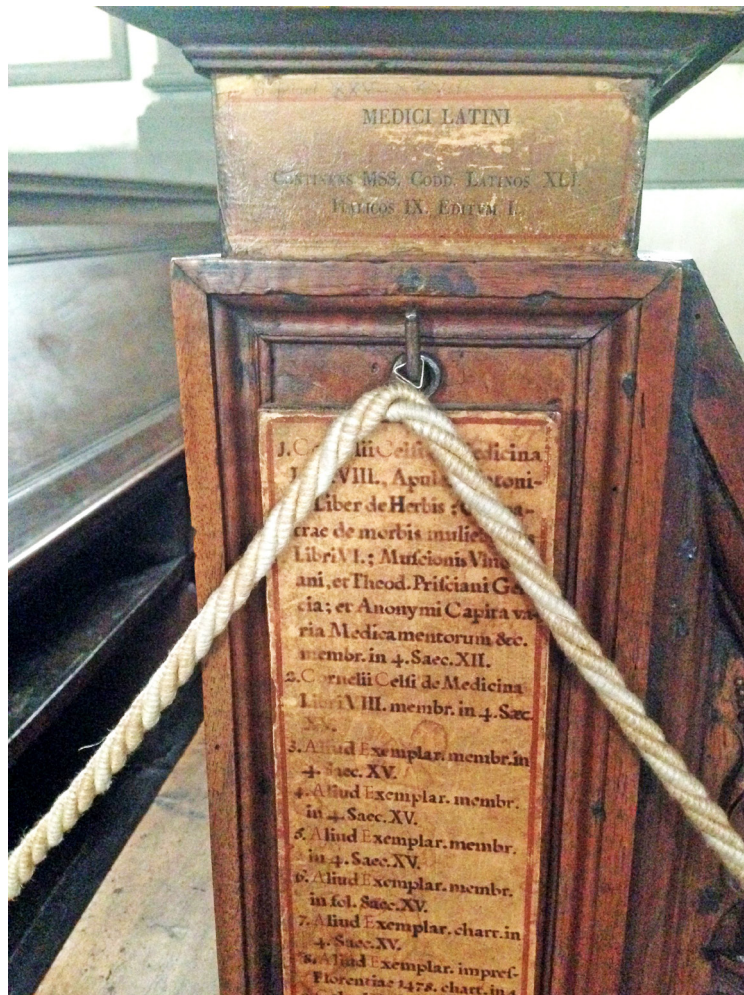 MEDICI LATINI
CONTINENS MSS. CODD. LATINOS XLI.
ITALICOS IX. EDITVM I.
1. Cornelii Celsi Medicina
VIII., Apule toni-
Liber de Herbis;
trae de morbis mulie
Libri VI.; Muſcionis Vin
ani, et Theod. Priſciani Ge
cia; et Anonymi Capita va-
ria Medicamentorum &c.
membr. in 4. Saec. XII.
2. Cornelii Celſi de Medicina
Libri VIII. membr. in 4. Sæc.
XV.
3. Aliud Exemplar. membr. in
4. Saec. XV.
4. Aliud Exemplar. membr.
in 4. Saec. XV.
5. Aliud Exemplar. membr.
in 4. Saec. XV.
6. Aliud Exemplar. membr.
in fol. Saec. XV.
7. Aliud Exemplar. chart. in
4. Saec. XV.
8. Aliud Exemplar. impreſ-
Florentiae 1478. chart. in